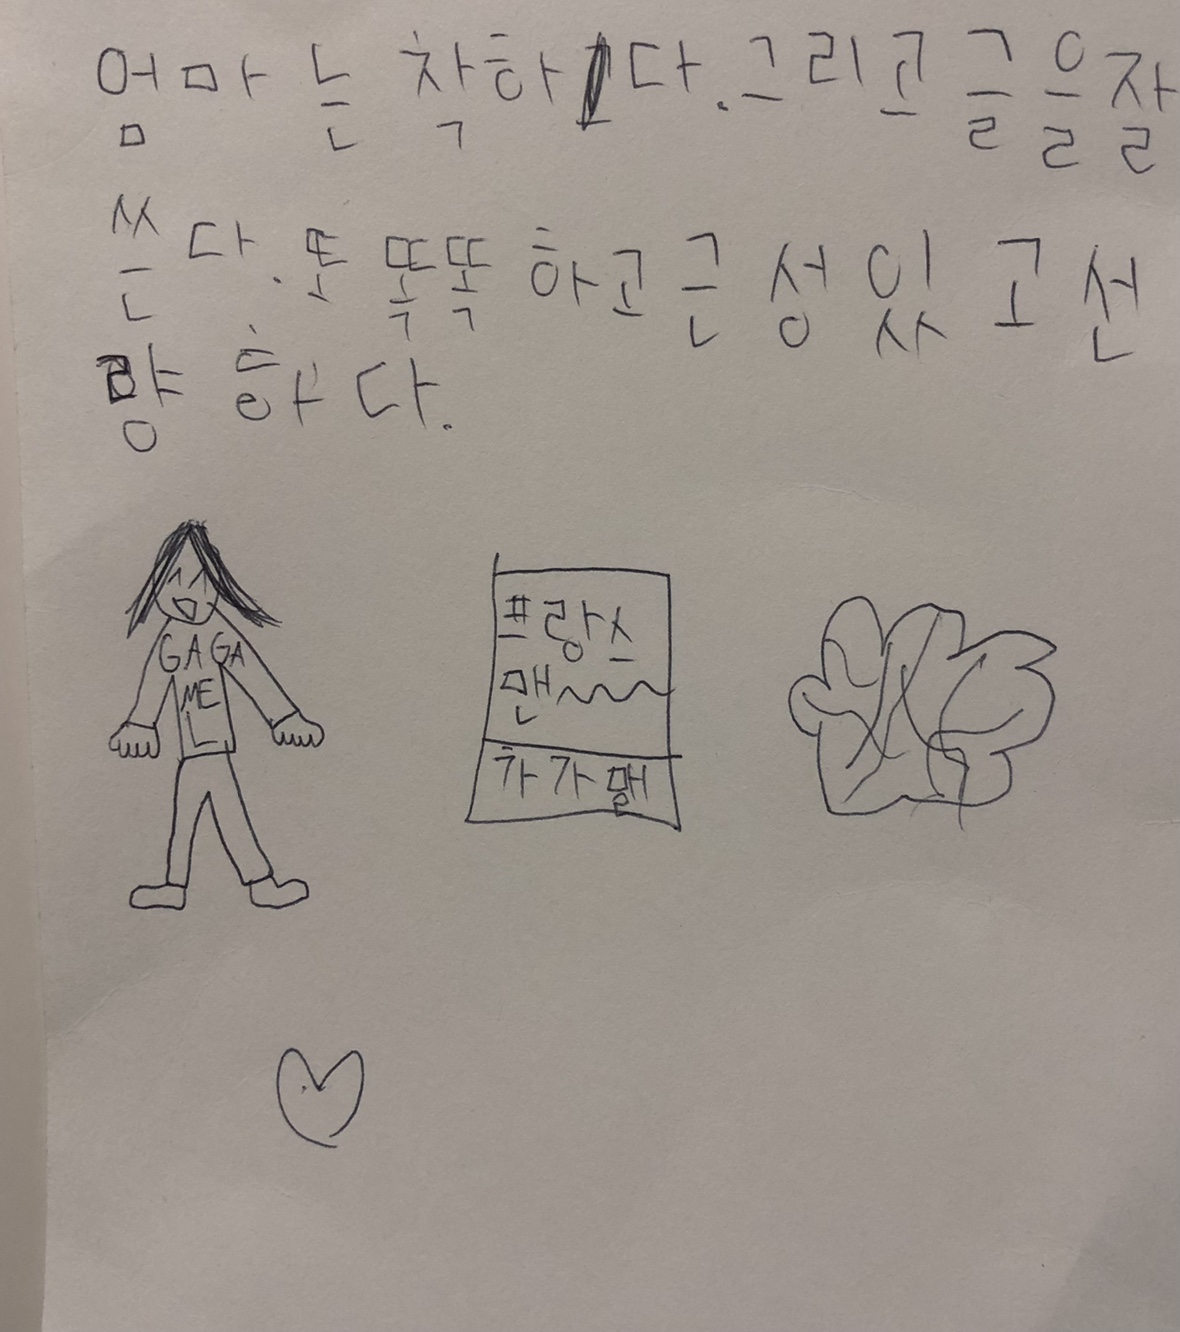 엄마는 착하다. 그리고 글을 잘
쓴다. 또 똑똑하고 근성있고 선
량하다.
GAGA
ME
L
프랑스
맨
가가멜